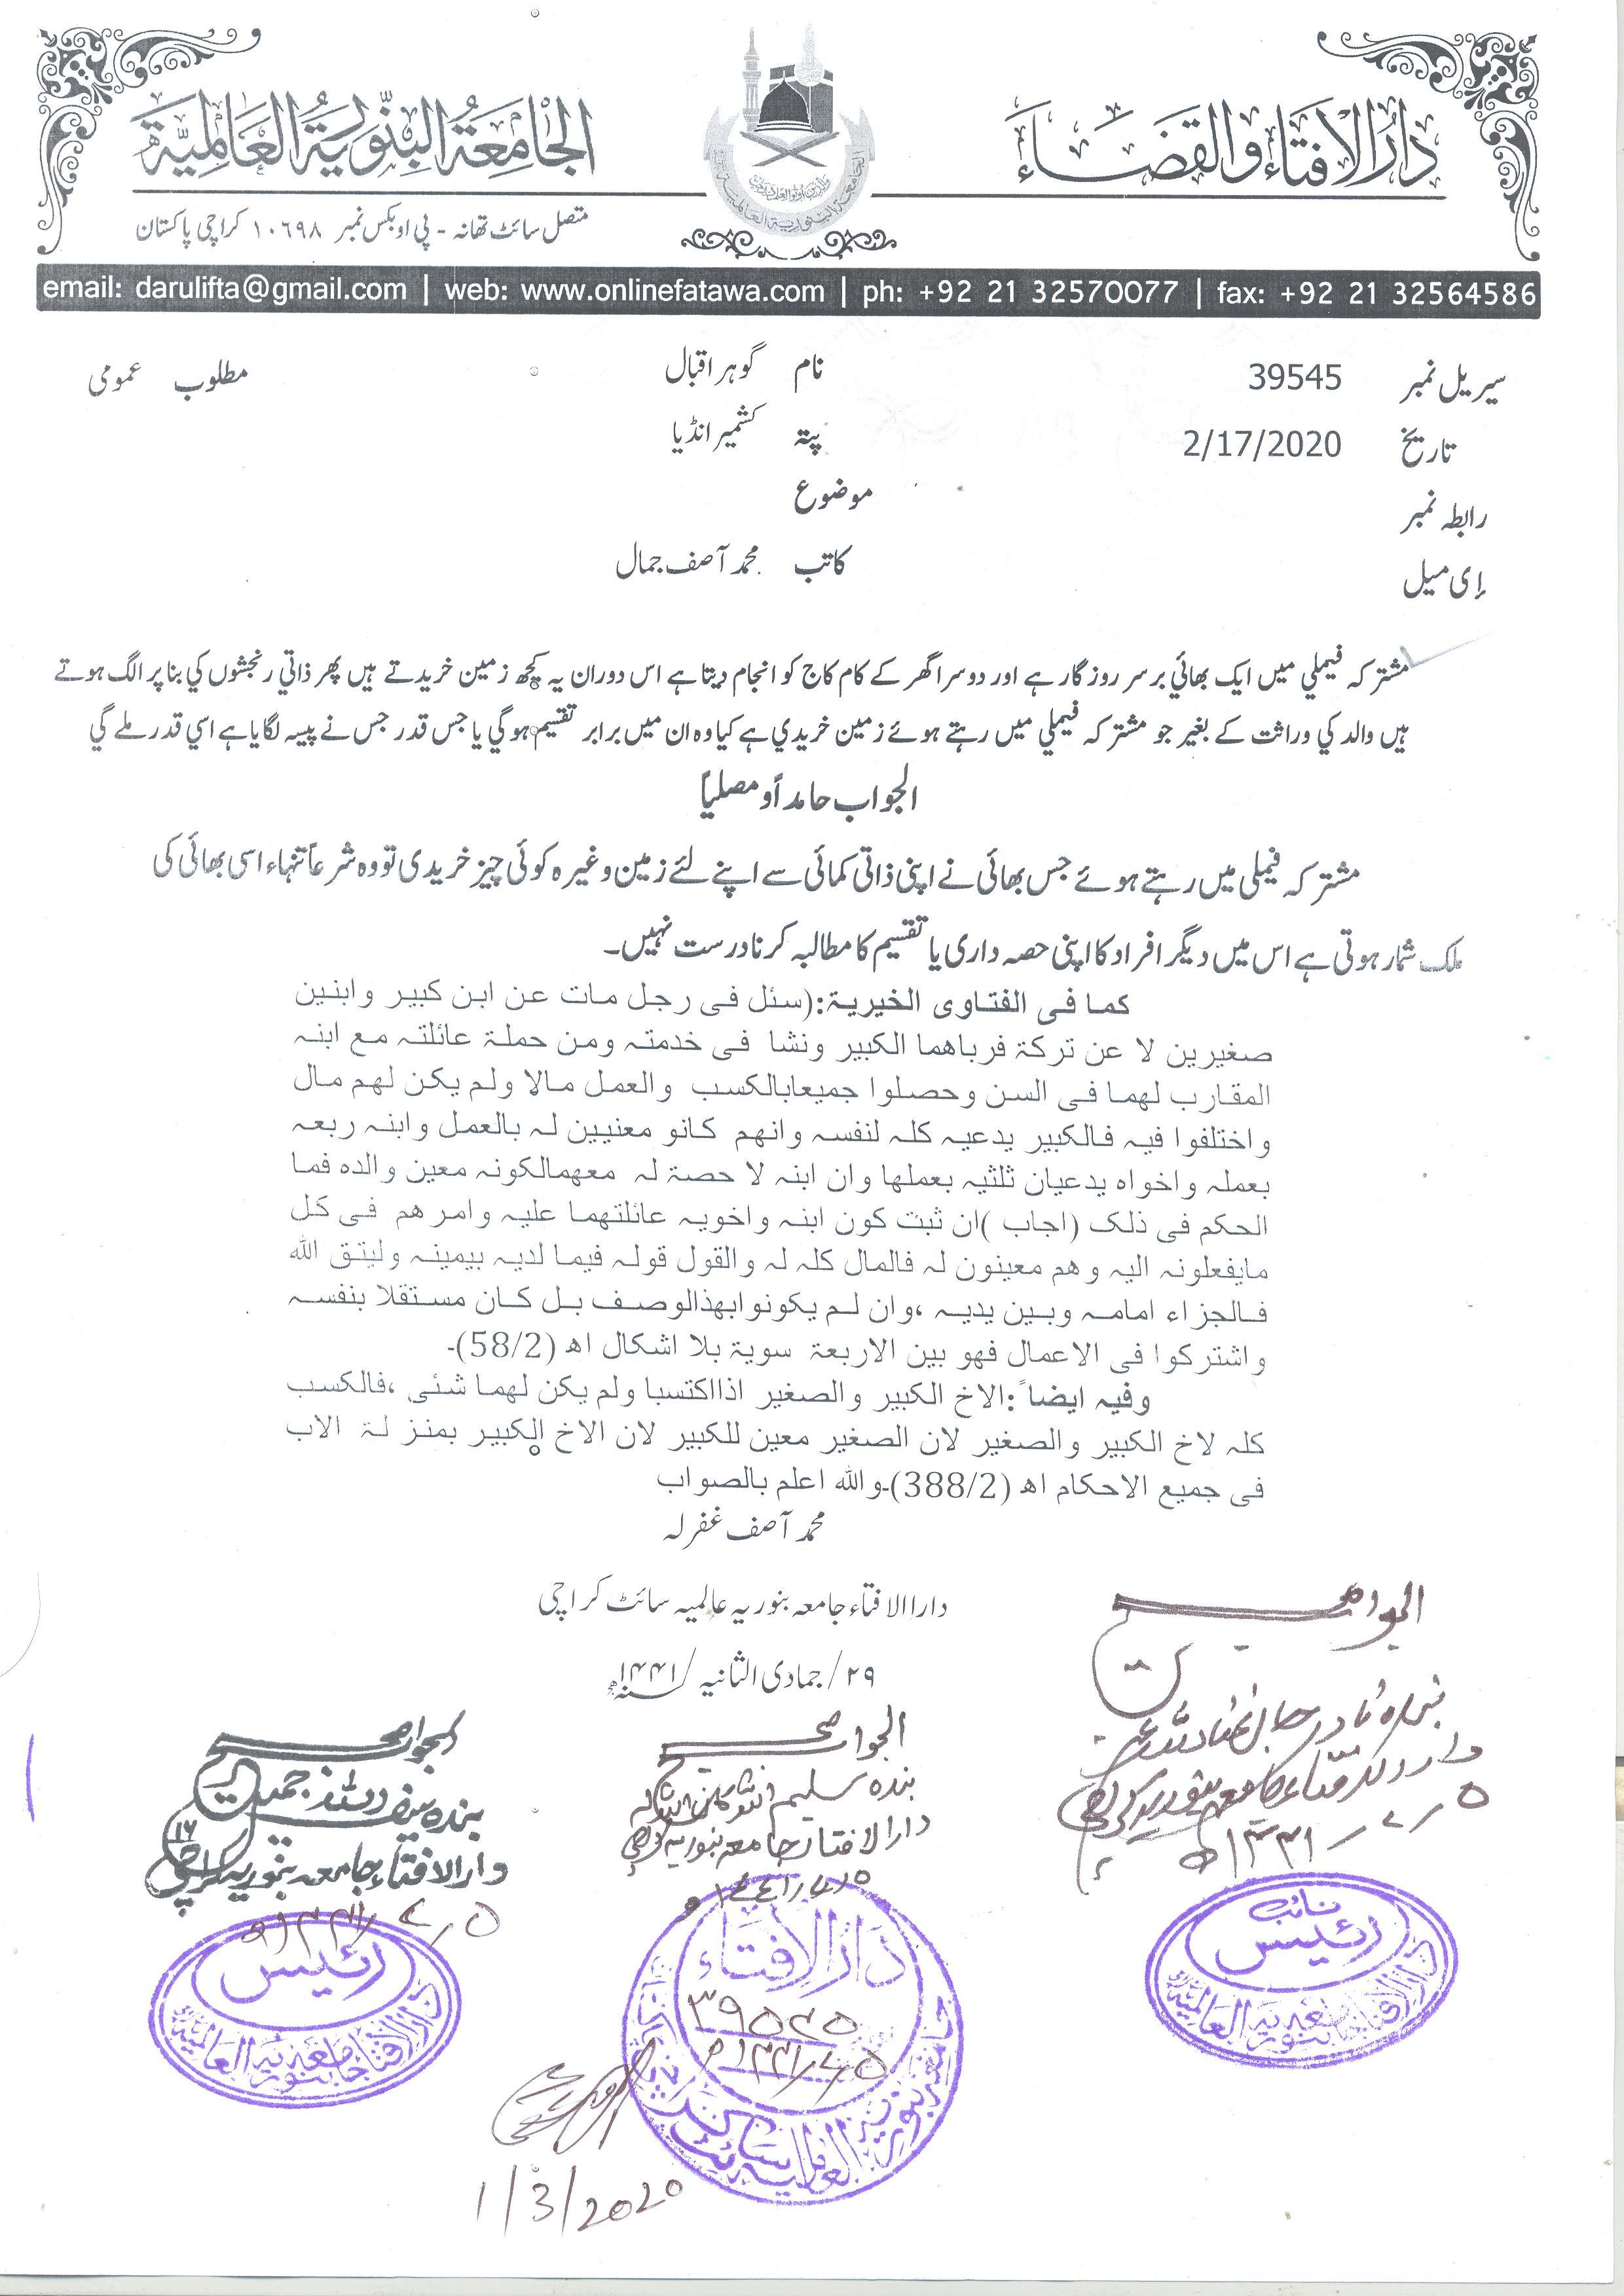 دارالافتاء والقضاء
الجامعة البنورية العالمية
متصل سائٹ تھانہ - پی او بکس نمبر ۱۰۶۹۸ کراچی پاکستان
email: darulifta@gmail.com | web: www.onlinefatawa.com | ph: +92 21 32570077 | fax: +92 21 32564586
سیریل نمبر 39545 نام گوہر اقبال مطلوب عمومی
تاریخ 2/17/2020 پتہ کشمیر انڈیا
رابطہ نمبر موضوع
اِی میل کاتب محمد آصف جمال
مشترکہ فیملي میں ایک بھائي بر سر روزگار ہے اور دوسرا گھر کے کام کاج کو انجام دیتا ہے اس دوران یہ کچھ زمین خریدتے ہیں پھر ذاتي رنجشوں کي بنا پر الگ ہوتے
ہیں والد کي وراثت کے بغیر جو مشترکہ فیملي میں رہتے ہوئے زمین خریدي ہے کیا وہ ان میں برابر تقسیم ہوگي یا جس قدر جس نے پیسہ لگایا ہے اسي قدر ملے گي
الجواب حامداً و مصلیاً
مشترکہ فیملی میں رہتے ہوئے جس بھائی نے اپنی ذاتی کمائی سے اپنے لئے زمین وغیرہ کوئی چیز خریدی تو وہ شرعاً تنہاء اسی بھائی کی
ملک شمار ہوتی ہے اس میں دیگر افراد کا اپنی حصہ داری یا تقسیم کا مطالبہ کرنا درست نہیں۔
کما فی الفتاوی الخیریۃ:(سئل فی رجل مات عن ابن کبیر وابنین
صغیرین لا عن ترکۃ فرباھما الکبیر ونشا فی خدمتہ ومن حملۃ عائلتہ مع ابنہ
المقارب لھما فی السن وحصلوا جمیعابالکسب والعمل مالا ولم یکن لھم مال
واختلفوا فیہ فالکبیر یدعیہ کلہ لنفسہ وانھم کانو معنیین لہ بالعمل وابنہ ربعہ
بعملہ واخواہ یدعیان ثلثیہ بعملھا وان ابنہ لا حصۃ لہ معھمالکونہ معین والدہ فما
الحکم فی ذلک (اجاب )ان ثبت کون ابنہ واخویہ عائلتھما علیہ وامرھم فی کل
مایفعلونہ الیہ وھم معینون لہ فالمال کلہ لہ والقول قولہ فیما لدیہ بیمینہ ولیتق اللہ
فالجزاء امامہ وبین یدیہ ،وان لم یکونوابھذالوصف بل کان مستقلا بنفسہ
واشترکوا فی الاعمال فھو بین الاربعۃ سویۃ بلا اشکال اھ (58/2)۔
وفیہ ایضاً :الاخ الکبیر والصغیر اذااکتسبا ولم یکن لھما شئی ،فالکسب
کلہ لاخ الکبیر والصغیر لان الصغیر معین للکبیر لان الاخ الکبیر بمنزلۃ الاب
فی جمیع الاحکام اھ (388/2)۔واللہ اعلم بالصواب
محمد آصف غفرلہ
داراالافتاء جامعہ بنوریہ عالمیہ سائٹ کراچی
۲۹/جمادی الثانیہ/۱۴۴۱ھ
الجواب صحیح
بندہ نادر جان
دارالافتاء جامعہ بنوریہ کراچی
۵/۷/۱۴۴۱ھ
الجواب صحیح
بندہ سلیم اللہ
دارالافتاء جامعہ بنوریہ کراچی
۵/۷/۱۴۴۱ھ
الجواب صحیح
بندہ سیف اللہ جمیل
دارالافتاء جامعہ بنوریہ کراچی
۵/۷/۱۴۴۱ھ
نائب رئیس
دارالافتاء جامعہ بنوریہ العالمیۃ
دارالافتاء
۳۹۵۴۵
۵/۷/۱۴۴۱ھ
رئیس
دارالافتاء جامعہ بنوریہ العالمیۃ
1/3/2020